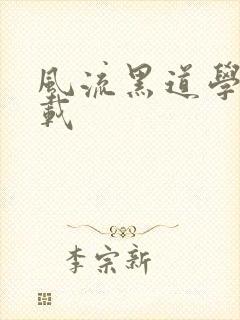 風流黑道學
載
李宗新